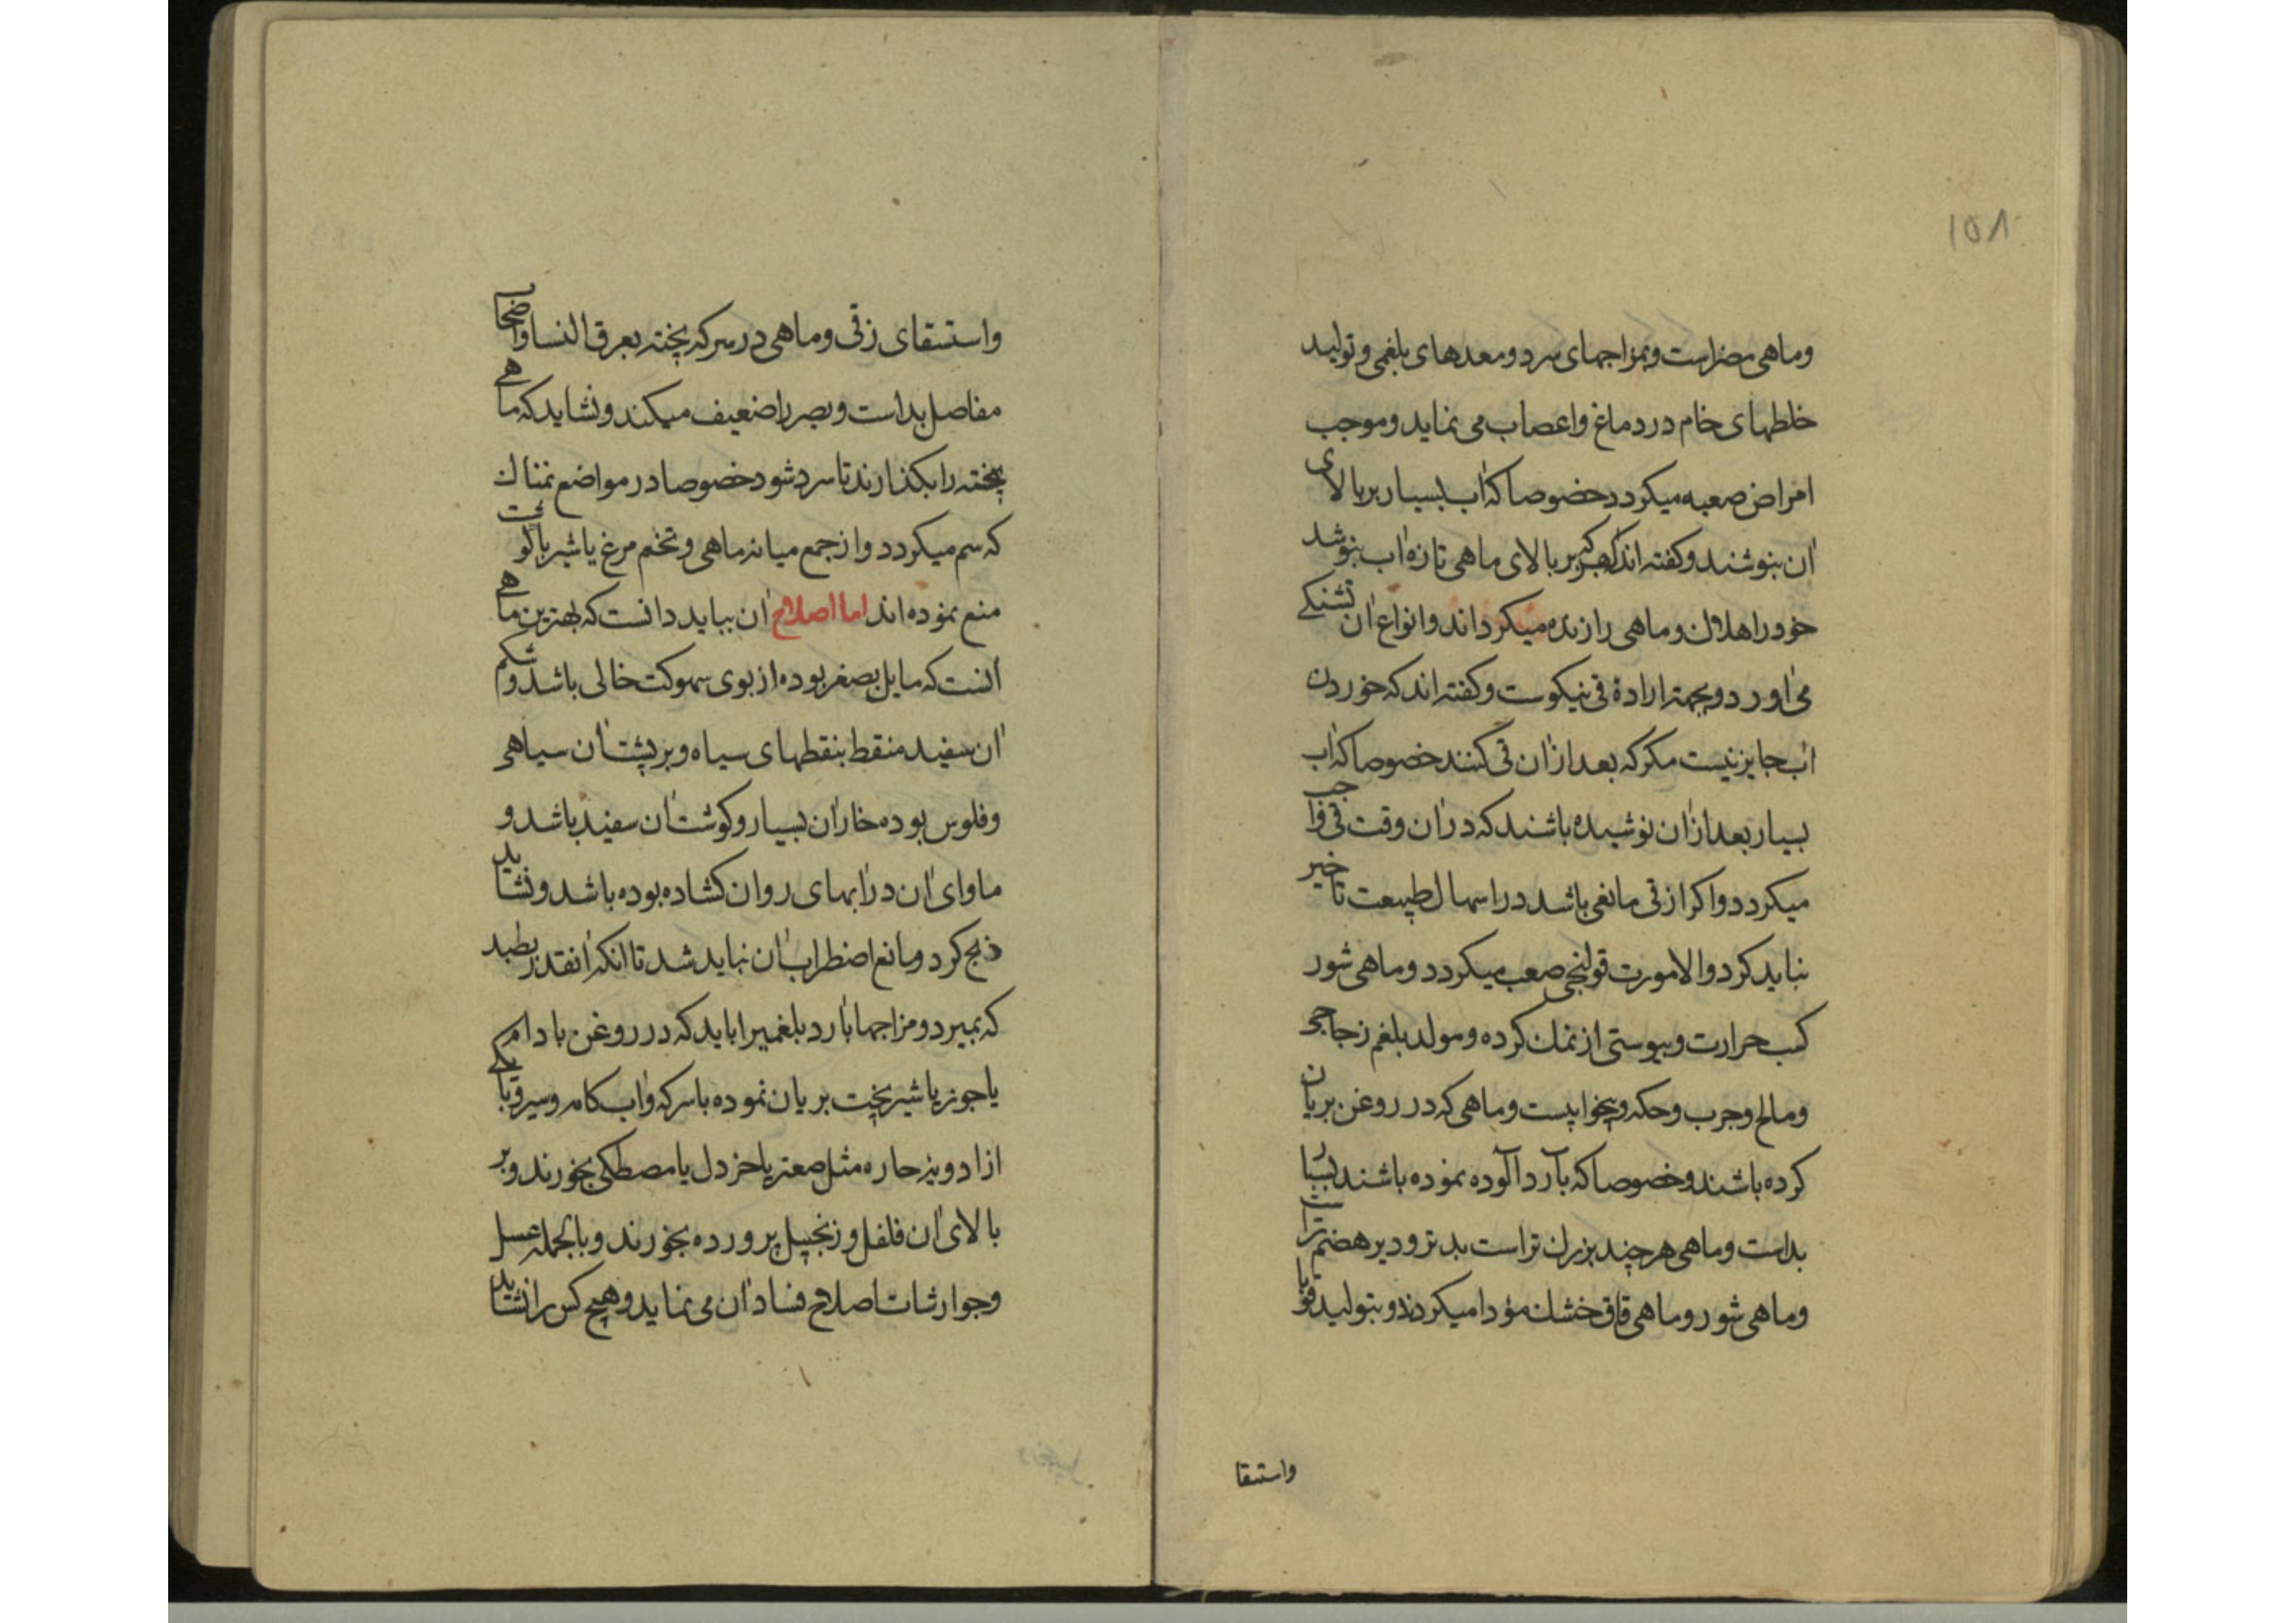 ۱۵۸
وماهی مضراست وبمزاجهای سرد ومعدهای بلغمی وتولید
خلطهای خام در دماغ واعصاب می نماید وموجب
امراض صعبه میکردد خصوصا که اب بسیار بر بالای
ان بنوشند وکفته اند که هر که بر بالای ماهی تازه اب بنوشد
خود را هلاک وماهی را زنده میکرداند وانواع ان تشنکی
می اورد وبجهة ارادۀ قی نیکوست وکفته اند که خوردن
اب جایز نیست مکر که بعد ازان قی کنند خصوصا که اب
بسیار بعد ازان نوشیده باشند که دران وقت قی واجب
میکردد واکر از قی مانعی باشد در اسهال طبیعت تاخیر
نباید کرد والا مورث قولنجی صعب میکردد وماهی شور
کسب حرارت ویبوستی از نمک کرده ومولد بلغم زجاجی
ومالح وجرب وحکه وبیخوابیست وماهی که در روغن بریان
کرده باشند وخصوصا که بآرد آلوده نموده باشند بسیار
بداست وماهی هرچند بزرک تراست بدتر ودیر هضم تراست
وماهی شور وماهی قاق خشک مؤدا میکردند وبتولید قوبا
واستسقا
واستسقای زقی وماهی در سرکه پخته بعرق النسا واصحاب
مفاصل بداست وبصر را ضعیف میکند ونشاید که ماهی
پخته را بکذارند تا سرد شود خصوصا در مواضع نمناک
که سم میکردد واز جمع میانه ماهی وتخم مرغ یا شیر با کوشت
منع نموده اند اما اصلاح ان بباید دانست که بهترین ماهی
انست که مایل بصغر بوده از بوی سهوکت خالی باشد وشکم
ان سفید منقط بنقطهای سیاه وبر پشت ان سیاهی
وفلوس بوده خار ان بسیار وکوشت ان سفید باشد و
ماوای ان در ابهای روان کشاده بوده باشد ونشاید
ذبح کرد ومانع اضطراب ان نباید شد تا انکه انقدر بطپد
که بمیرد ومزاجها بارد بلغمیرا باید که در روغن بادام
یا جوز یا شیر پخت بریان نموده با سرکه واب کامه وسیر وبا یکی
از ادویه حاره مثل صعتر یا خردل یا مصطکی بخورند وبر
بالای ان فلفل وزنجبیل پرورده بخورند وبالجمله عسل
وجوارشات اصلاح فساد ان می نماید وهیچ کس را نشاید